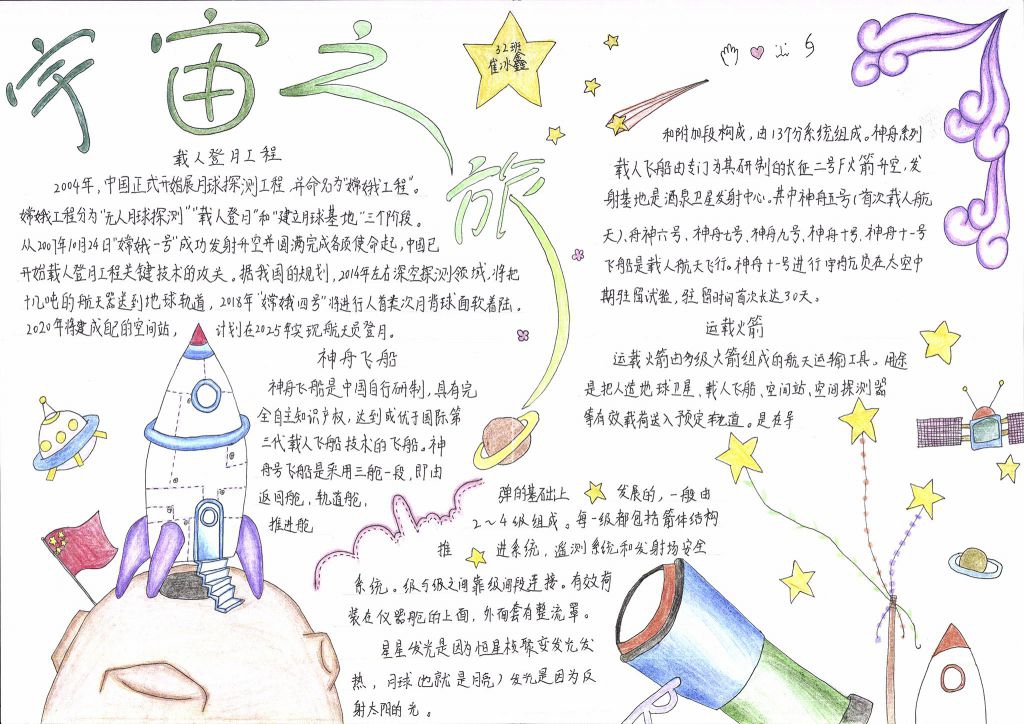 宇宙之旅
32班
崔冰鑫
载人登月工程
2004年,中国正式开始展月球探测工程,并命名为"嫦娥工程"。
嫦娥工程分为"无人月球探测""载人登月"和"建立月球基地"三个阶段。
从2007年10月24日"嫦娥一号"成功发射升空并圆满完成各项使命起,中国已
开始载人登月工程关键技术的攻关。据我国的规划,2014年左右深空探测领域,将把
十几吨的航天器送到地球轨道,2018年"嫦娥四号"将进行人首类次月背球面软着陆。
2020年将建成自己的空间站,计划在2025年实现航天员登月。
神舟飞船
神舟飞船是中国自行研制,具有完
全自主知识产权,达到或优于国际第
三代载人飞船技术的飞船。神
舟号飞船是采用三舱一段,即由
返回舱,轨道舱,
推进舱
和附加段构成,由13个分系统组成。神舟系列
载人飞船由专门为其研制的长征二号F火箭升空,发
射基地是酒泉卫星发射中心。其中神舟五号(首次载人航
天)、舟神六号、神舟七号、神舟九号、神舟十号、神舟十一号
飞船是载人航天飞行。神舟十一号进行宇航员在太空中
期驻留试验,驻留时间首次长达30天。
运载火箭
运载火箭由多级火箭组成的航天运输工具。用途
是把人造地球卫星、载人飞船、空间站、空间探测器
等有效载荷送入预定轨道。是在导
弹的基础上发展的,一般由
2~4级组成。每一级都包括箭体结构
推进系统,遥测系统和发射场安全
系统。级与级之间靠级间段连接。有效荷
装在仪器舱的上面,外面套有整流罩。
星星发光是因为恒星核聚变发光发
热,月球(也就是月亮)发光是因为反
射太阳的光。